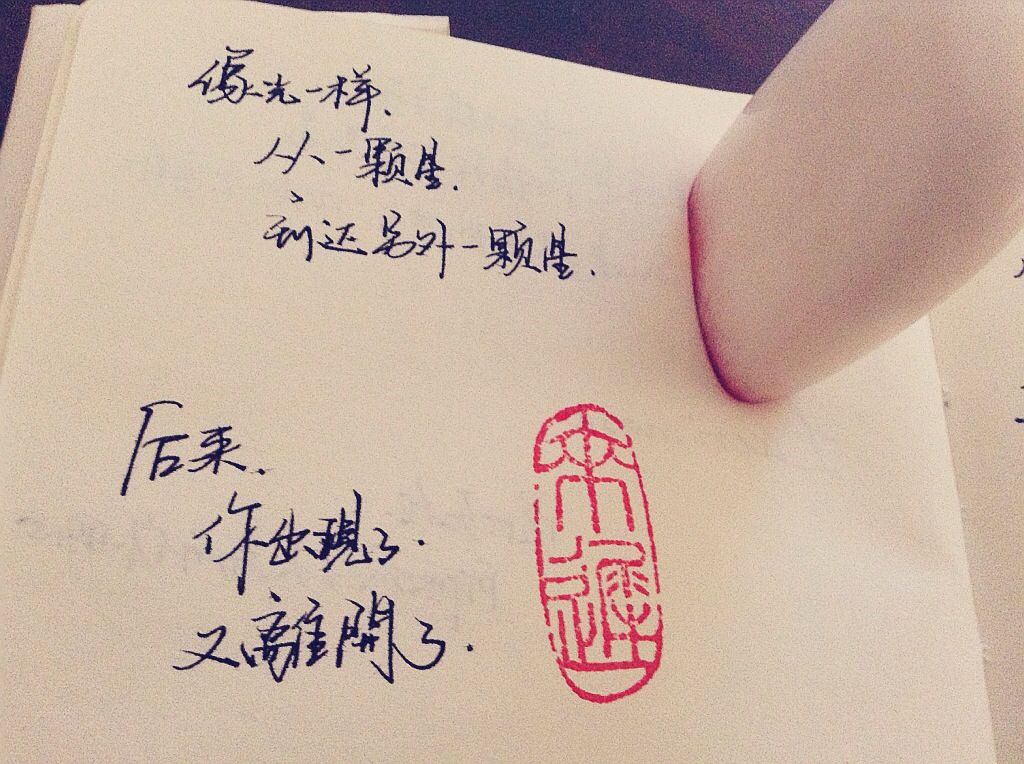 像光一样、
从一颗星.
到达另外一颗星.
后来.
你出現了.
又離開了.